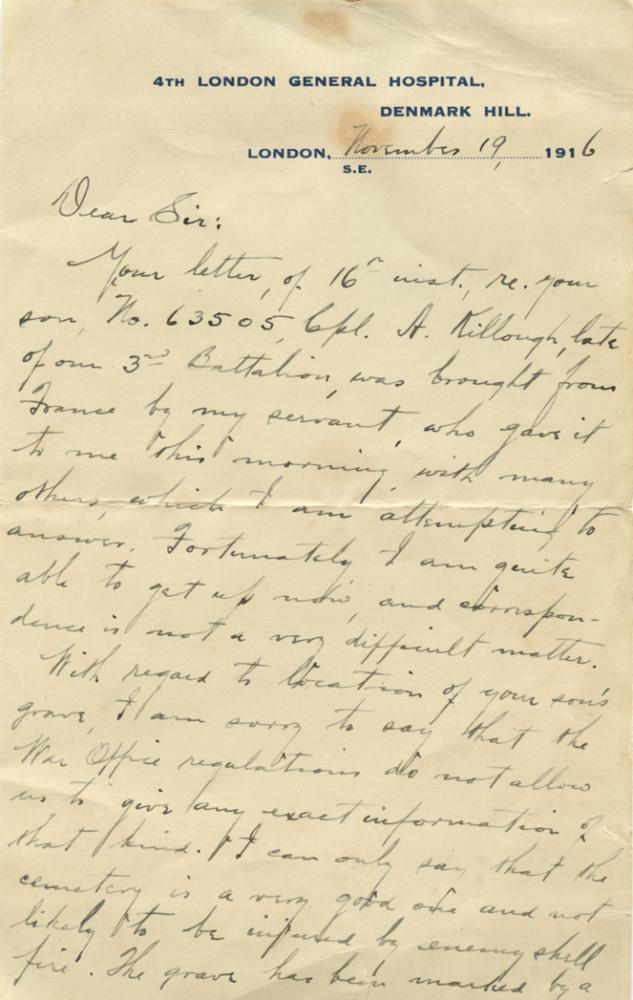 4TH LONDON GENERAL HOSPITAL,
DENMARK HILL.
LONDON, November 19, 1916
S.E.
Dear Sir:
Your letter, of 16th inst., re. your
son, No. 63505, Cpl. A. Killough, late
of our 3rd Battalion, was brought from
France by my servant, who gave it
to me this morning, with many
others, which I am attempting to
answer. Fortunately I am quite
able to get up now, and correspon-
dence is not a very difficult matter.
With regard to location of your son's
grave, I am sorry to say that the
War Office regulations do not allow
us to give any exact information of
that kind. I can only say that the
cemetery is a very good one and not
likely to be injured by enemy shell
fire. The grave has been marked by a